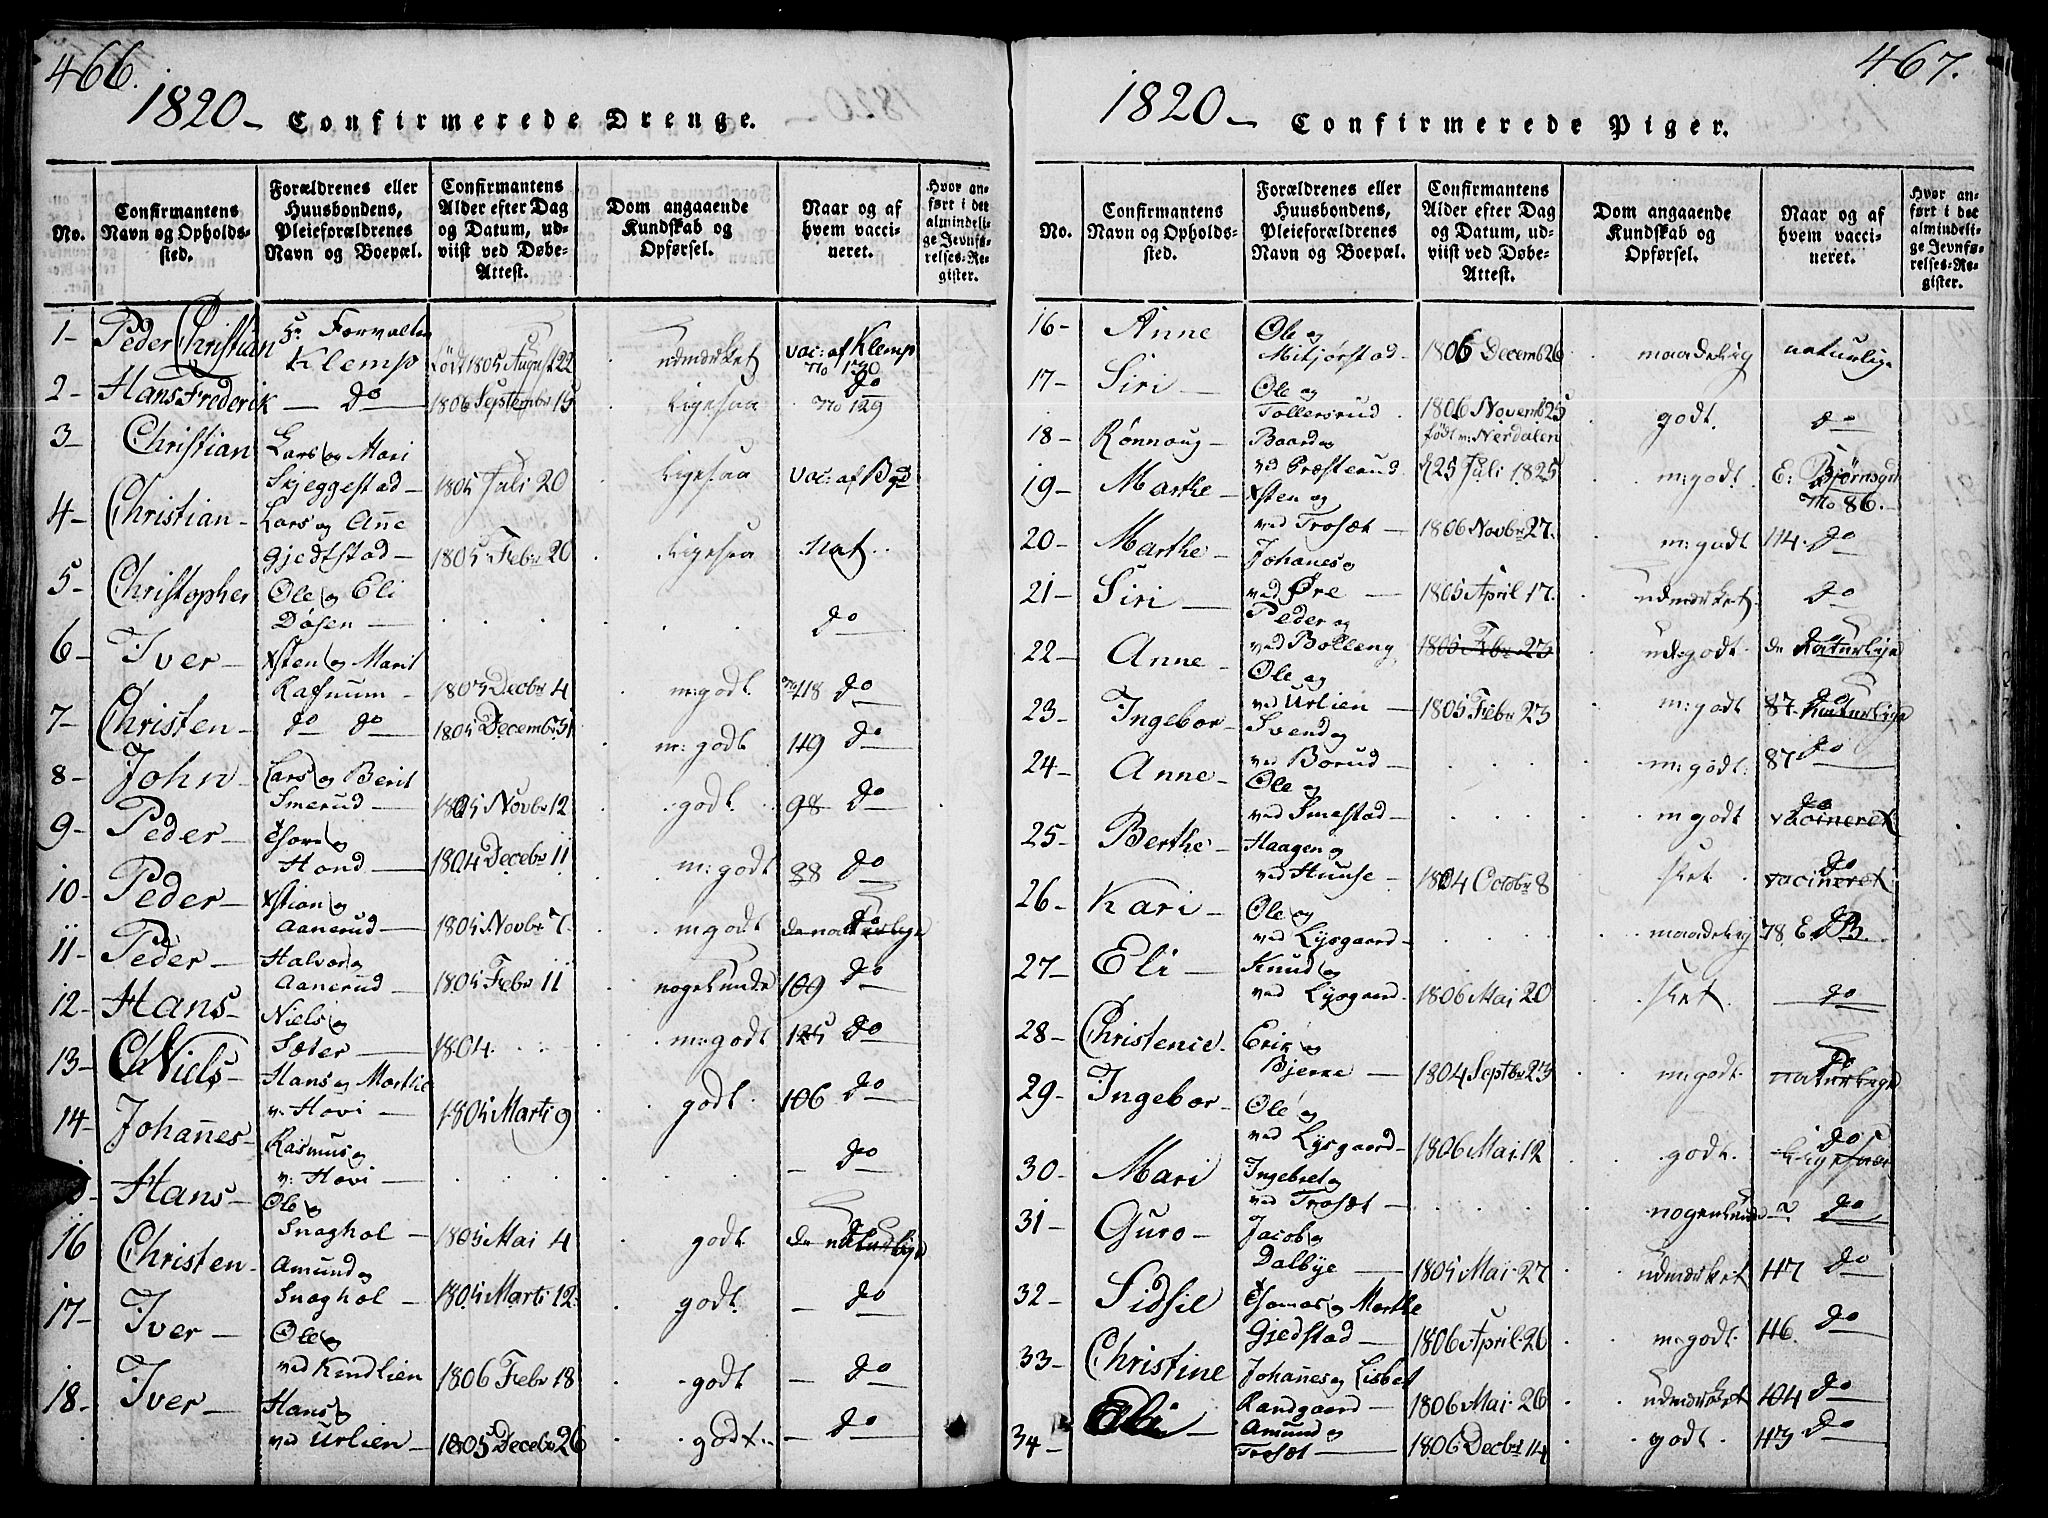 466.
1820 - Confirmerede Drenge.
No.
Confirmantens Navn og Opholds-sted.
Forældrenes eller Huusbondens, Pleieforældrenes Navn og Boepæl.
Confirmantens Alder efter Dag og Datum, ud-viist ved Døbe-Attest.
Dom angaaende Kundskab og Opførsel.
Naar og af hvem vacci-neret.
Hvor an-ført i det almindeli-ge Jevnfø-relses-Re-gister.
1- Peder Christian Hr Forvalter Klemp født 1805 August 22 udmærket vac: af Klemp No 130
2- Hans Frederik - do - 1806 Septembr 15 Ligesaa do No 129
3- Christian Lars og Mari Skjeggestad - 1805 Juli 20 Ligesaa Vac: af Bgd
4- Christian - Lars og Añe Gjedtstad - 1805 Febr 20 Ligesaa Nat.
5- Christopher Ole og Eli Døsen - do
6- Iver - Xsten og Marit Rafnum - 1805 Decbr 4 m: godt No 118 do
7- Christen - do do 1805 Decemb 31 m: godt 119 do
8- John - Lars og Berit Smerud - 1805 Novbr 12 godt 98 do
9- Peder - Thore og Hond - 1804 Decebr 11 m: godt 88 do
10- Peder - Xstian og Aanerud - 1805 Novbr 7 m godt de naturlige do
11- Peder - Halvor og Aanerud - 1805 Febr 11 nogekunde 109 do
12- Hans - Niels og Sæter - 1804 m: godt 125 do
13- Niels - Hans og Marthe v: Hovi - 1805 Marti 9 godt 106 do
14- Johañes - Rasmus og v: Hovi - - do
Hans - Ole og Snaghol - 1805 Mai 4 godt de naturlige do
16 Christen - Amund og Snaghol - 1805 Marti 12 godt - do
17- Iver - Ole og ved Kindlien 1806 Febr 18 godt - do
18- Iver - Hans og ved Urlien - 1805 Decebr 26 godt - do
467.
1820 - Confirmerede Piger.
No.
Confirmantens Navn og Opholds-sted.
Forældrenes eller Huusbondens, Pleieforældrenes Navn og Boepæl.
Confirmantens Alder efter Dag og Datum, ud-viist ved Døbe-Attest.
Dom angaaende Kundskab og Opførsel.
Naar og af hvem vacci-neret.
Hvor an-ført i det almindelige Jevnfø-relses-Re-gister.
16- Anne Ole og Mitjørstad - 1806 Decemb 26 maadelig naturlige
17- Siri - Ole og Tollersrud 1806 Novemb 25 godt. do
18- Rønnoug - Baard og ved Præsterud født v: Nerdalen d 25 Juli 1825 m: godt E: Bjørnsgd No 86.
19- Marthe - Xsten og ved Trosæt - 1806 Novbr 27. m: godt 114. do
20- Marthe - Johanes og ved Øre - 1805 April 17. udmærket do
21- Siri - Peder og ved Bolleng 1805 Febr 23 ud: godt de naturlige
22- Anne - Ole og ved Urlien - 1805 Febr 23 m: godt 87. naturlige do
23- Ingebor - Svend og ved Borud - m: godt: 87 do
24- Anne - Ole og ved Smestad - m godt vacineret do
25- Berthe - Haagen og ved Huuse - 1804 Octobr 8 slet. vacineret do
26- Kari - Ole og ved Lysgaard - maadelig 78 E. B. do
27- Eli - Knud og ved Lysgaard - 1806 Mai 20 slet do
28- Christence - Erik og Bjerke - 1804 Septbr 23 m: godt naturlige do
29- Ingebor - Ole og ved Lysgaard - 1806 Mai 12 godt. Ligesaa do
30- Mari Ingebret og ved Trosæt - nogenkunde do
31- Guro - Jacob og Dalbye - 1805 Mai 27 udmærket 117 do
32- Sidsie Thomas og Marthe Gjedstad - 1806 April 26 m: godt. 116. do
33- Christine Johañes og Lisbet Randgaard - 1806 Mai 26 udmærket 104 do
34- Eli - Amund og Trosæt - 1806 Decbr 14 godt 113 do